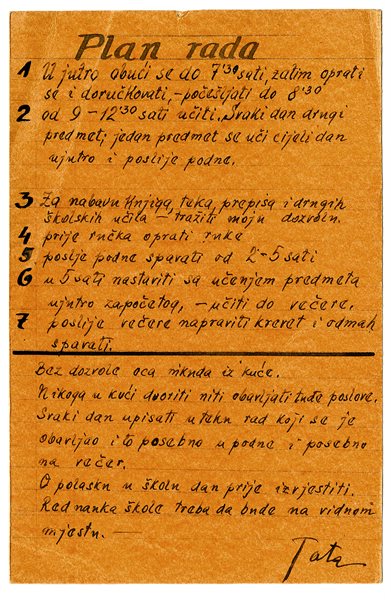 Plan rada
1 Ujutro obući se do 7'30 sati, zatim oprati
se i doručkovati, - počešljati do 8'30
2 od 9 - 12'30 sati učiti. Svaki dan drugi
predmet; jedan predmet se uči cijeli dan
ujutro i poslije podne.
3 Za nabavu knjiga, teka, prepisa i drugih
školskih učila - tražiti moju dozvolu.
4 prije ručka oprati ruke
5 poslje podne spavati od 2-5 sati
6 u 5 sati nastaviti sa učenjem predmeta
ujutro započetog, - učiti do večere.
7 poslije večere napraviti krevet i odmah
spavati.
Bez dozvole oca nikuda iz kuće.
Nikoga u kući dvoriti niti obavljati tuđe poslove.
Svaki dan upisati u teku rad koji se je
obavljao i to posebno u podne i posebno
na večer.
O polasku u školu dan prije izvjestiti.
Red nauka škole treba da bude na vidnom
mjestu. —
Tata